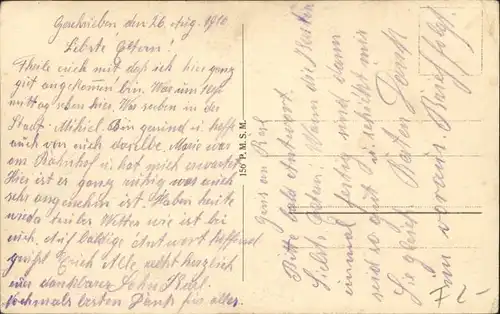 Geschrieben den 26. Aug. 1916
Liebste Eltern!
Theile euch mit daß ich hier ganz
gut angekommen bin. War um
mittag hier. Wir in der
Stadt Mihiel. Bin gesund u. hoffe
auch von euch dasselbe. Mario war
am Bahnhof u. hat mich erwartet.
Hier ist er ganz ruhig was auch
sehr angenehm ist. Haben heute
wieder Wetter wie ist bei
euch. Auf baldige Antwort hoffend
grüßt Euch Alle recht herzlich
euer dankbarer Sohn Karl.
nochmals besten Dank für alles.
156 P. M. S. M.
Gruss an
Bitte bald Antwort.
Liebste Wann die
einmal fertig sind dann
seid so gut u. schickt mir
Sie gleich Besten Dank
im voraus.
F 2-